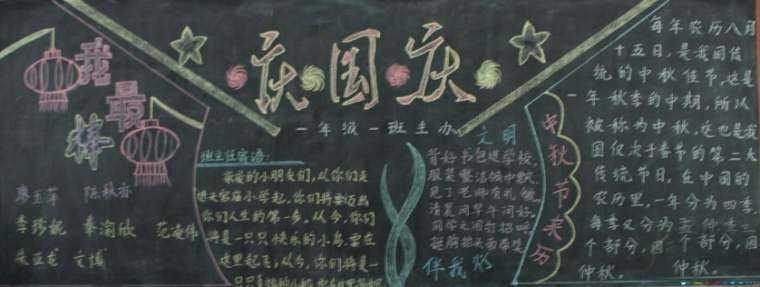 我最棒
庆国庆
一年级一班主办
廖玉萍
李珍妮 李渝欣 范俊伟
班主任寄语：
亲爱的小朋友们，从你们走
你们人生的第一步，从今，你们
将是一只只快乐的小鸟，要在
这里起飞，从今，你们将是一
文明
背好书包进学校
见了老师有礼貌
清晨问早午问好
同学之间打招呼
伴我行
中秋节来历
每年农历八月
十五日，是我国传
统的中秋佳节。这是
一年秋季的中期，所以
被称为中秋。这也是我
国仅次于春节的第二大
传统节日。在中国的
农历里，一年分为四季，
每季又分为孟、仲、季三
个部分，因
仲秋。 仲秋。